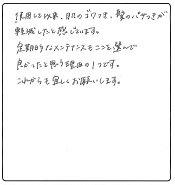 使用して以来、肌のゴワつき、髪のパサつきが
軽減したと感じています。
定期的なメンテナンスもここを選んで
良かったと思う理由の1つです。
これからも宜しくお願いします。